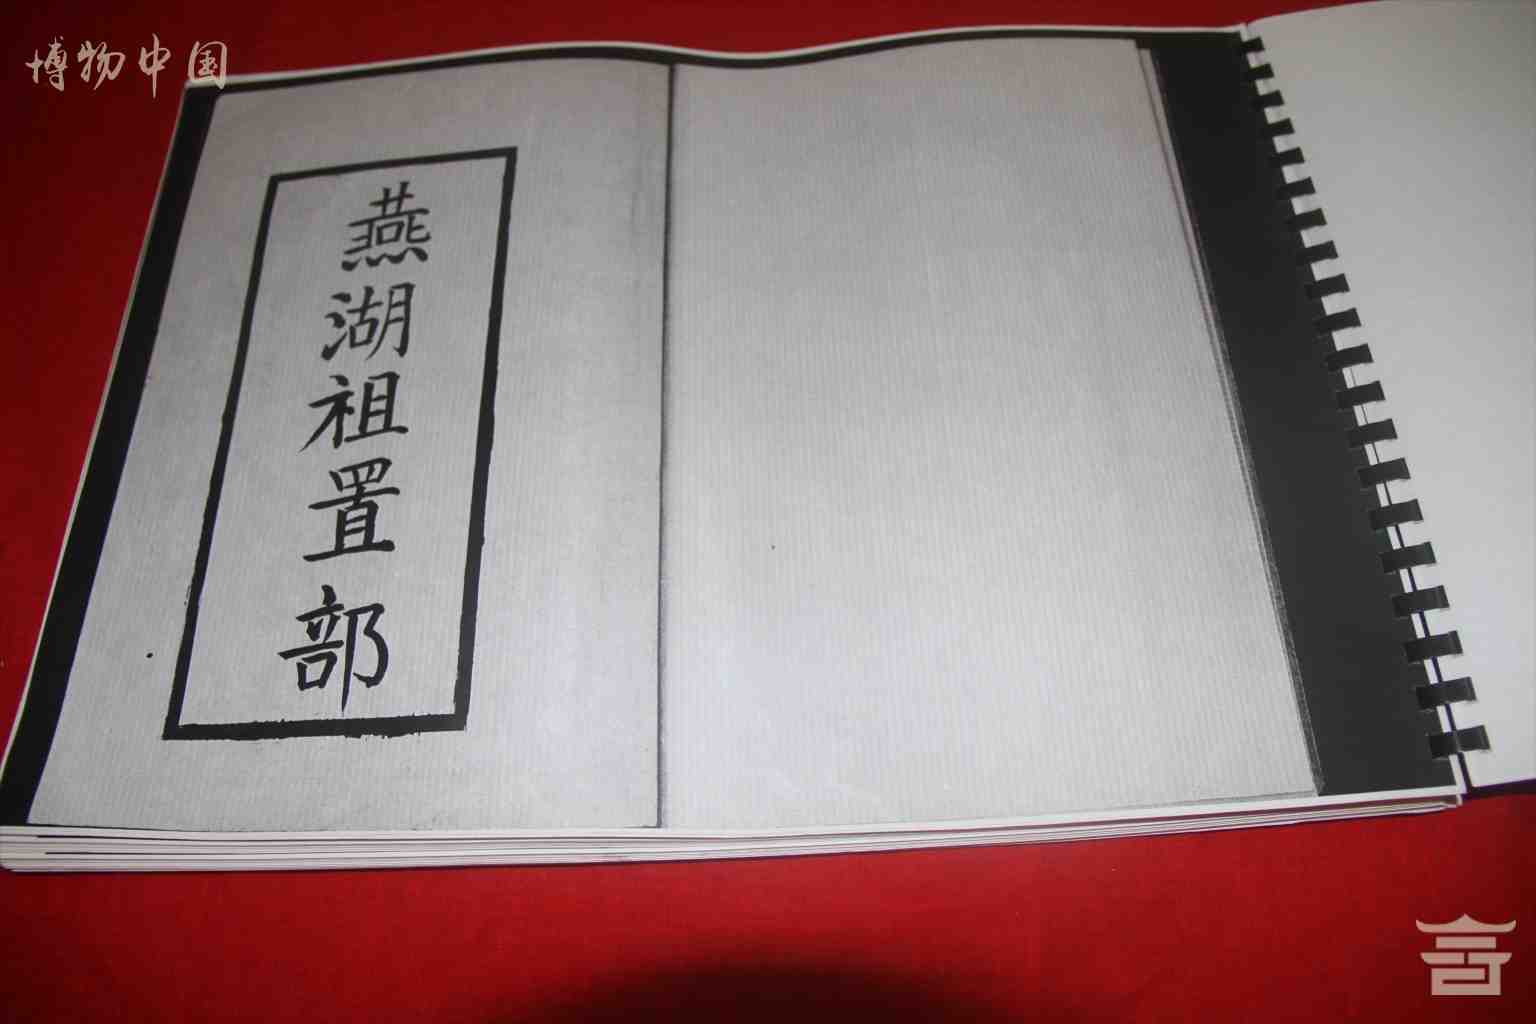 博物中国
燕湖祖置部